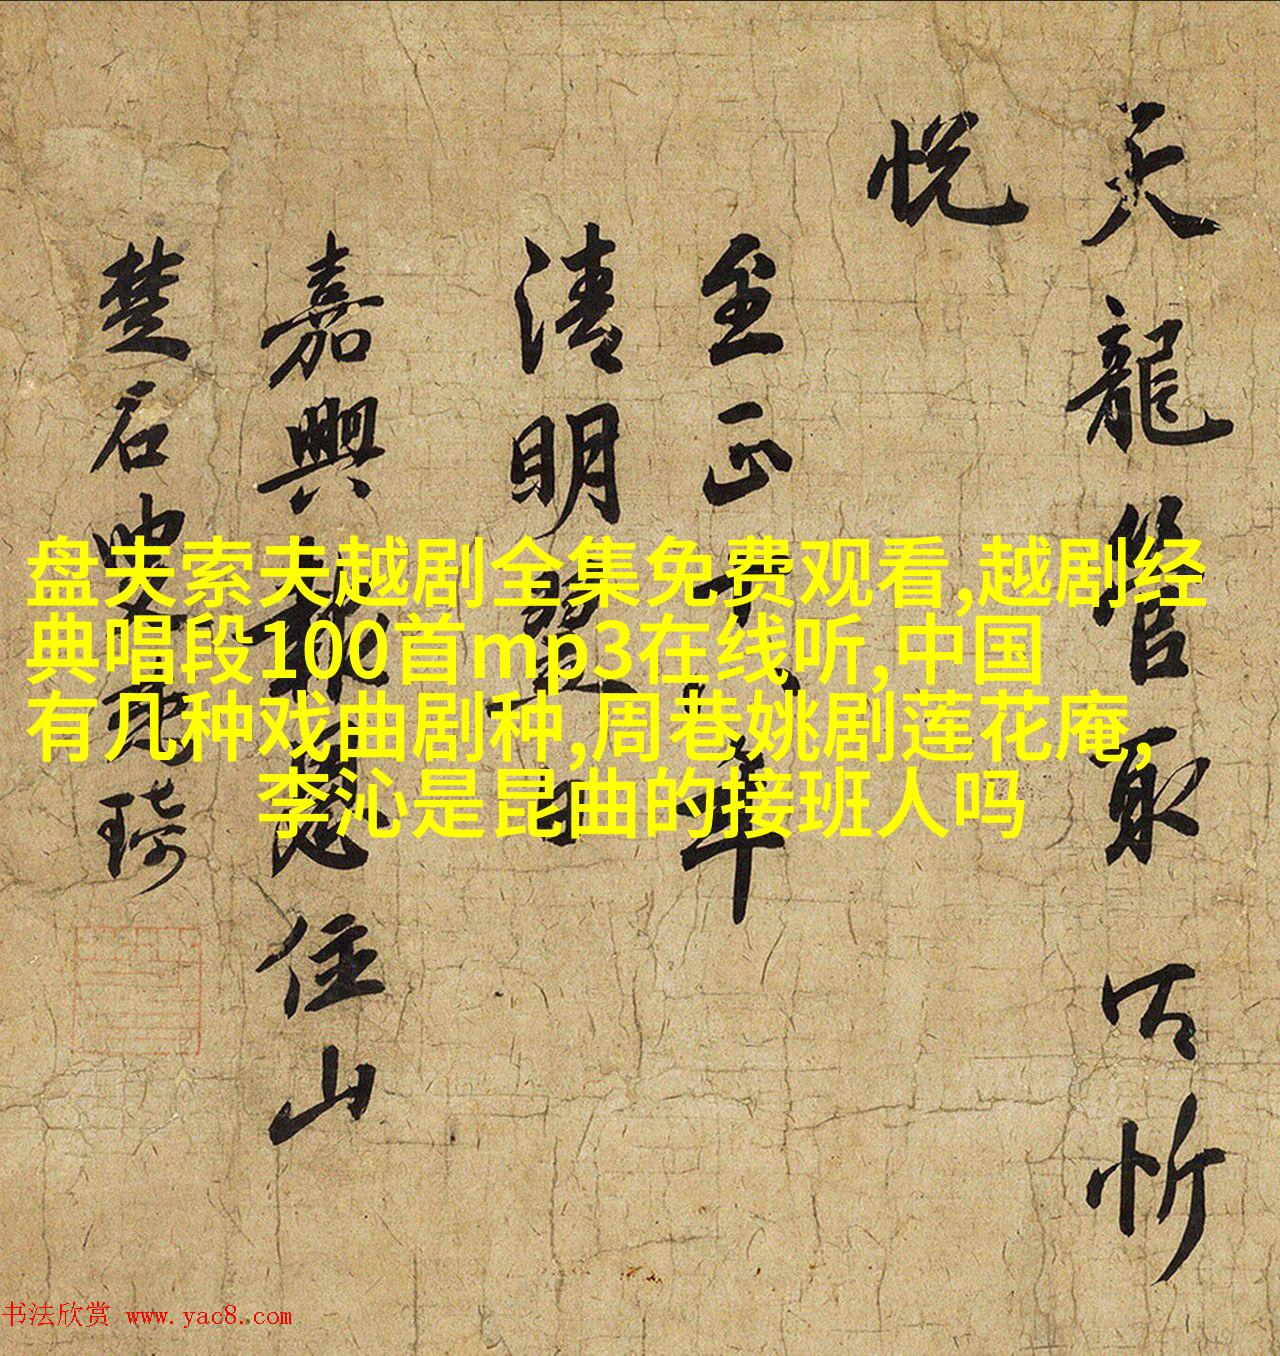 天龍管取以忻
悅
至正十八年
清明翌日
嘉興報恩住山
楚石叟梵琦
盘夫索夫越剧全集免费观看,越剧经
典唱段100首mp3在线听,中国
有几种戏曲剧种,周巷姚剧莲花庵,
李沁是昆曲的接班人吗
书法欣赏 www.yac8.com